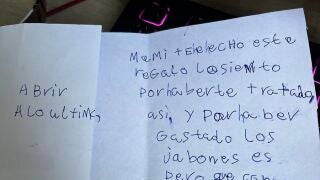 ABrir
ALO ultimo,
Mami te e HecHo este
regalo lo siento
Por haberte tratado
asi, y Por haber
Gastado los
jabones es
Pero que